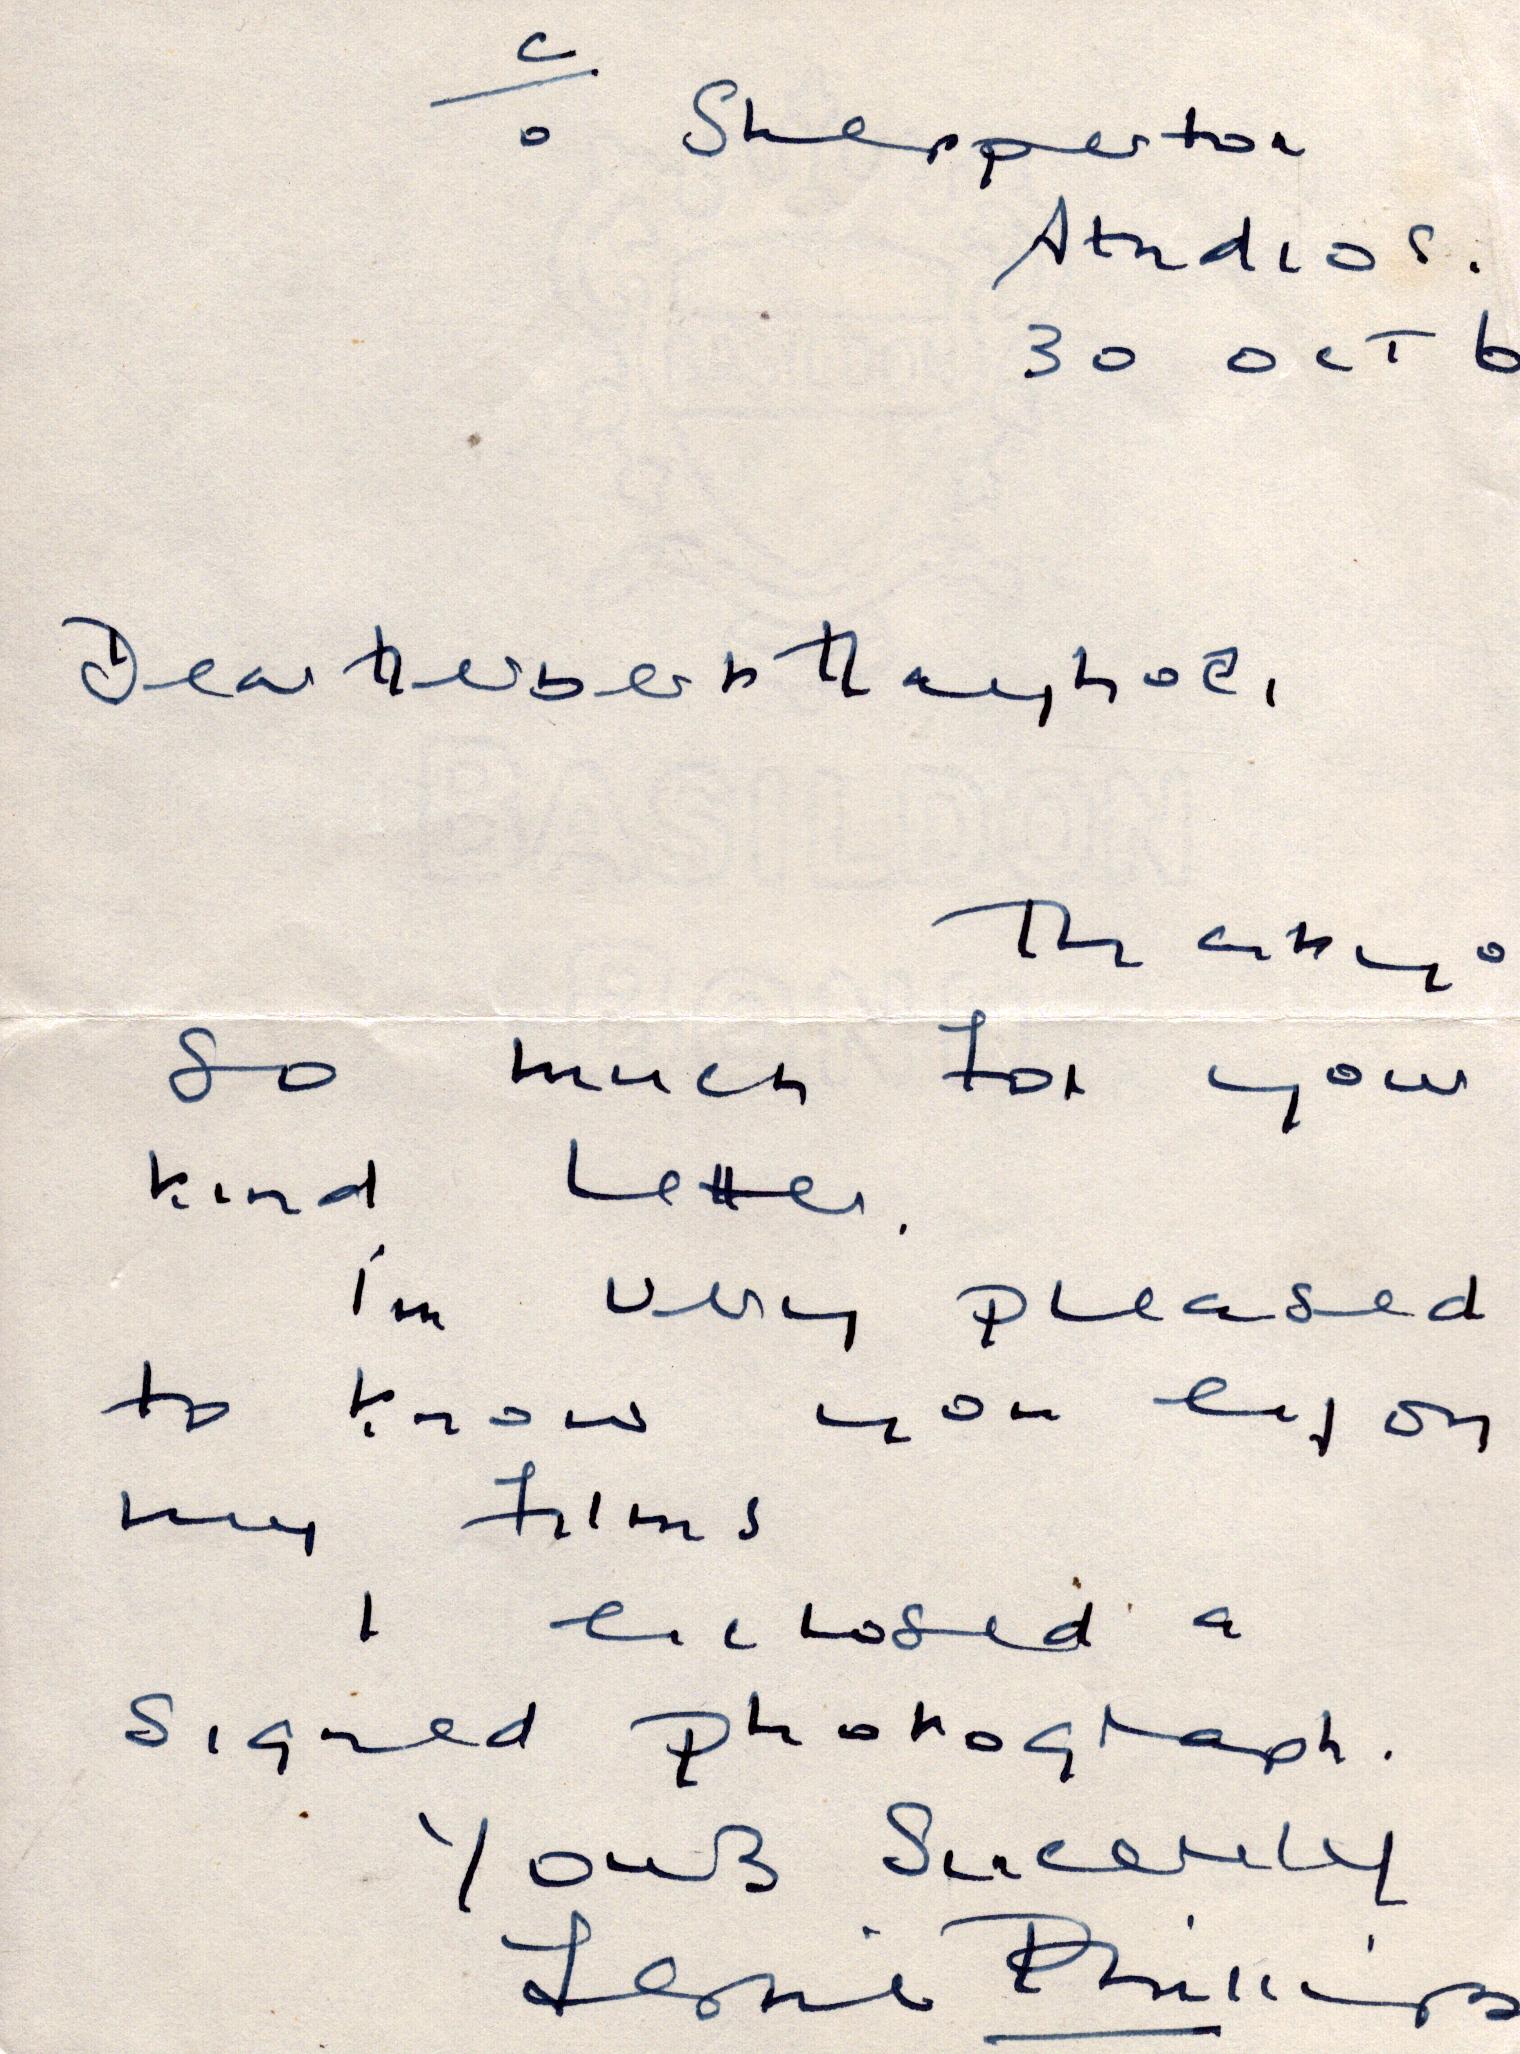 c/o Shepperton
Studios.
30 OCT 6
Dear Herbert
Thank yo
So much for your
kind letter.
I'm very pleased
to know you enjoy
my films
I enclosed a
signed photograph.
Yours Sincerely
Leslie Phillips
BASILDON